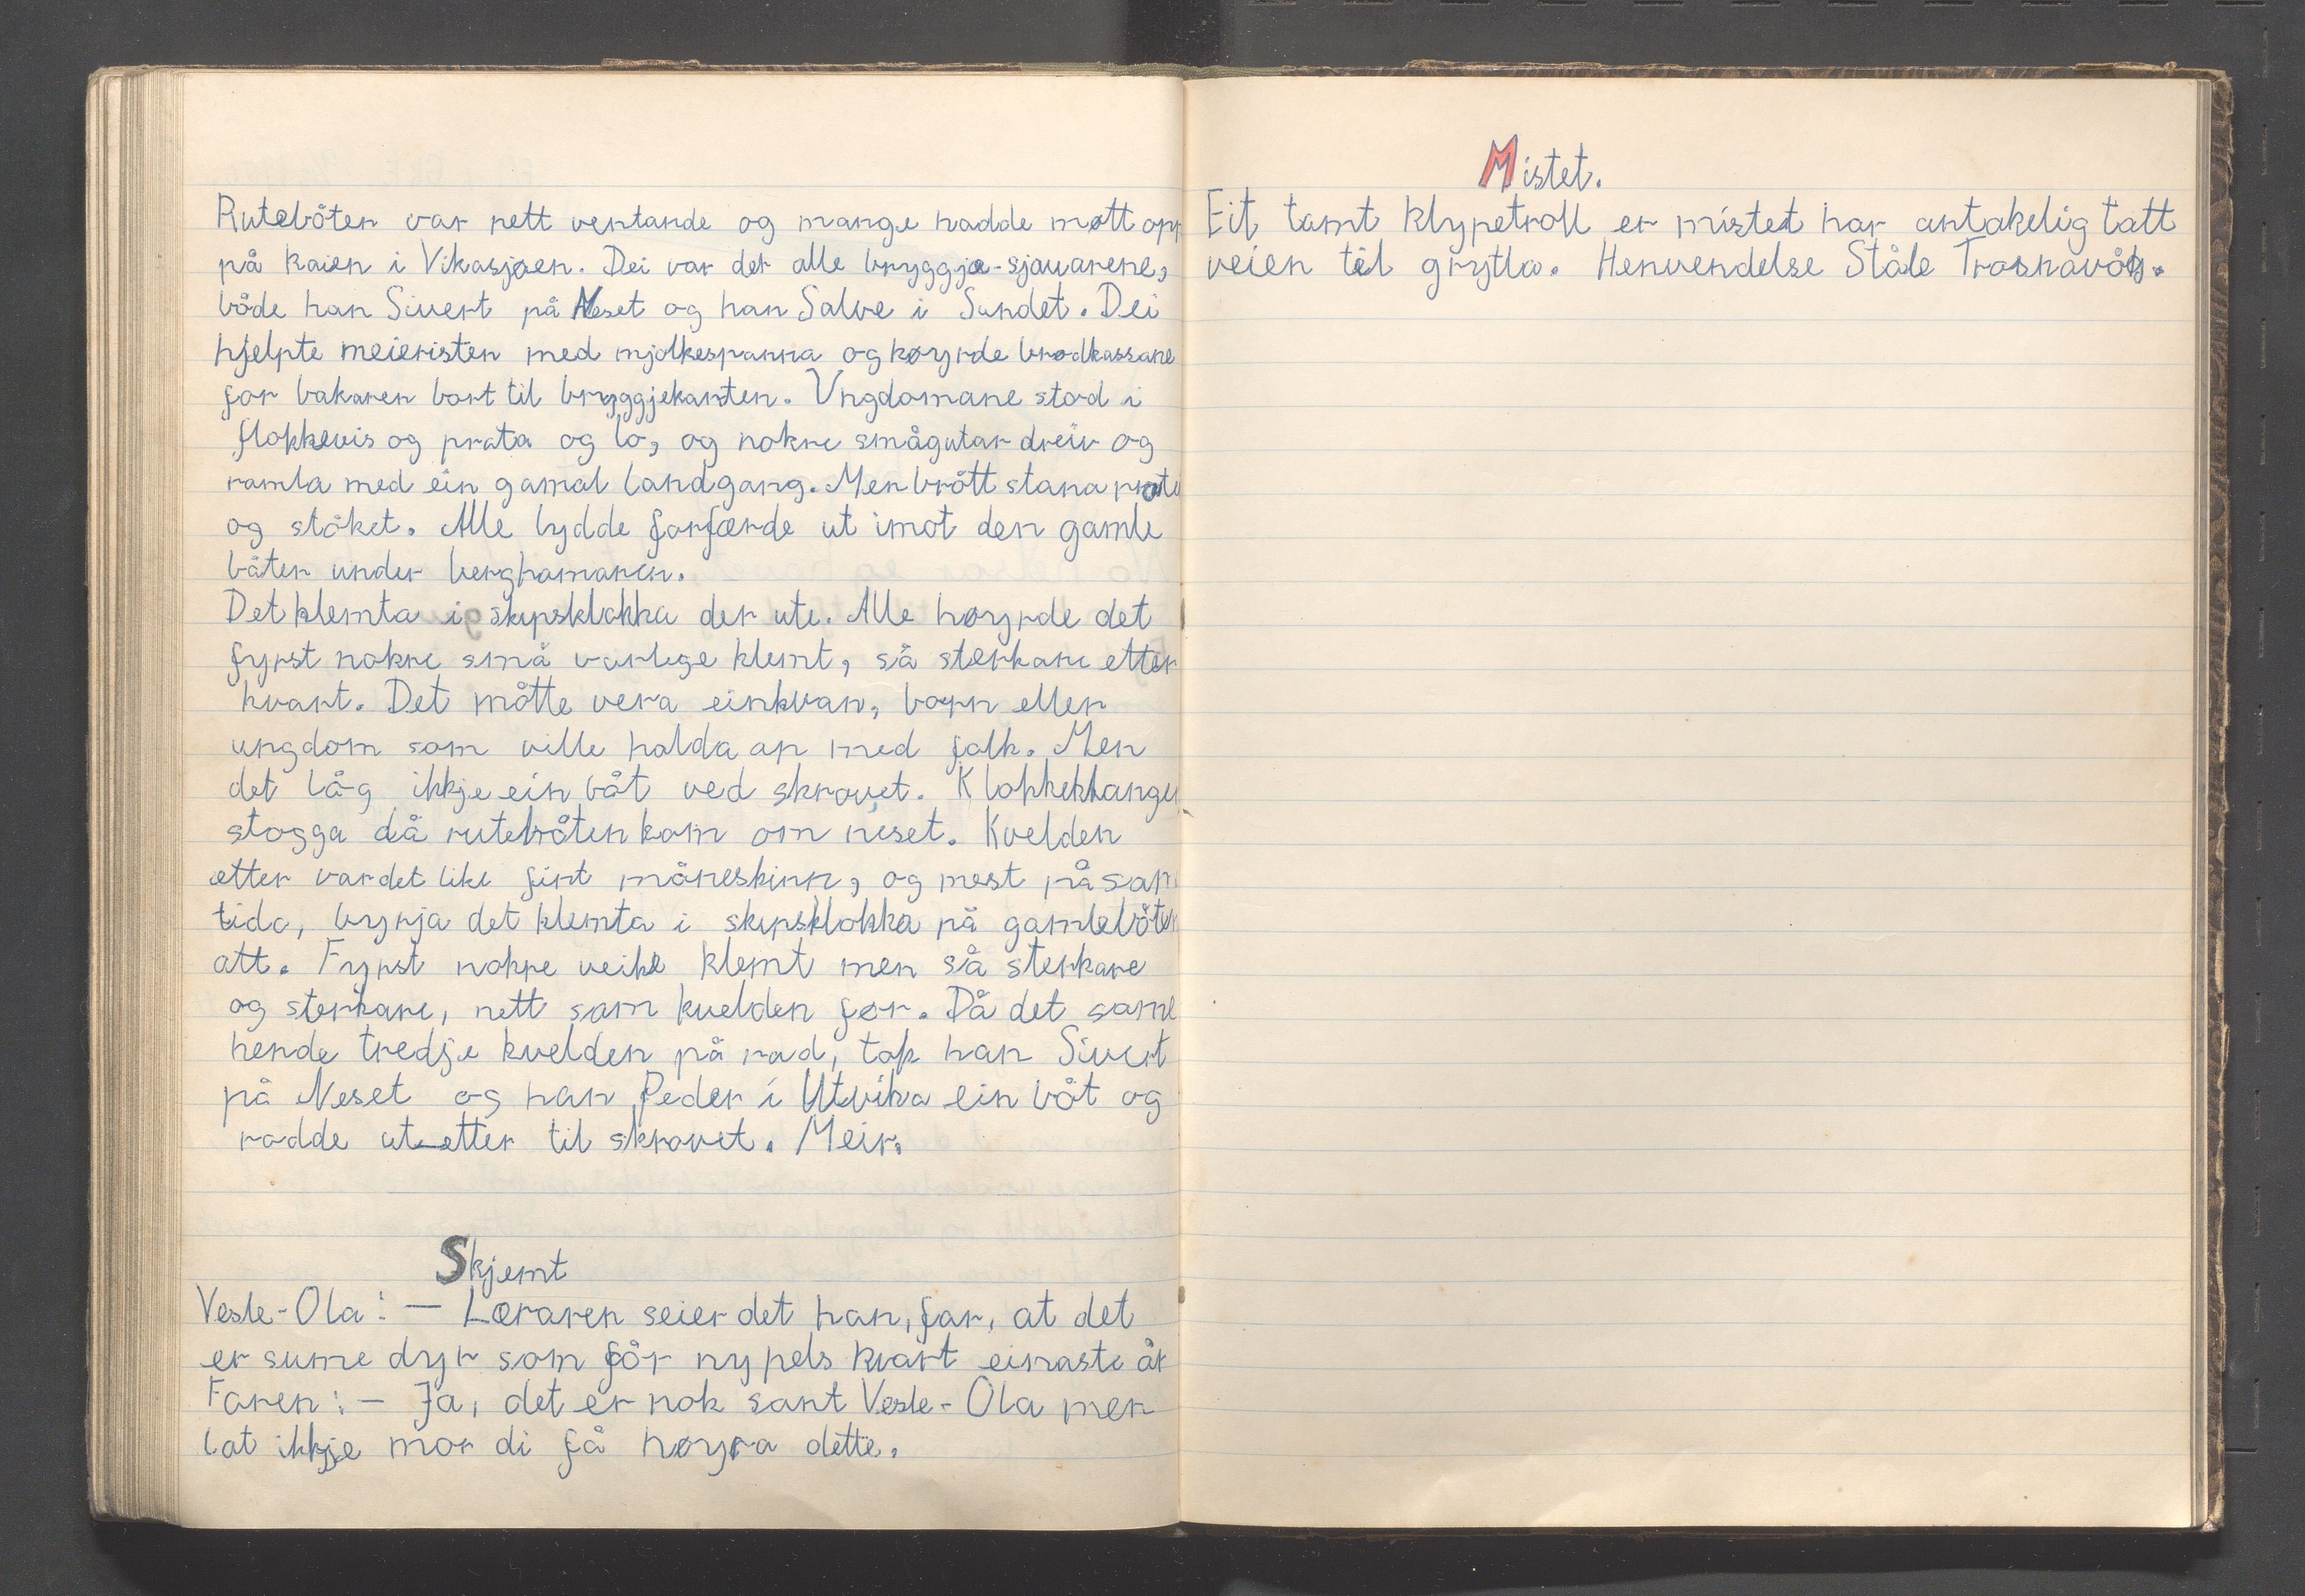 Rutebåten var nett ventande og mange hadde møtt opp
på kaien i Vikasjøen. Dei var der alle bryggje-sjauarene,
både han Sivert på Neset og han Salve i Sundet. Dei
hjelpte meieristen med mjølkespanna og køyrde brødkassane
for bakaren bort til bryggjekanten. Ungdomane stod i
flokkevis og prata og lo, og nokre smågutar dreiv og
ramla med ein gamal landgang. Men brått stana
og ståket. Alle lydde forfærde ut imot den gamle
båten under berghamaren.
Det klemta i skipsklokka der ute. Alle høyrde det
fyrst nokre små varlege klemt, så sterkare etter
kvart. Det måtte vera einkvan, born eller
ungdom som ville halda ap med folk. Men
det låg ikkje ein båt ved skrovet. Klokkeklangen
stogga då rutebåten kom om neset. Kvelden
etter var det like fint måneskinn, og mest på sam
tida, byrja det klemta i skipsklokka på gamlebåten
att. Fyrst nokre veike klemt men så sterkare
og sterkare, nett som kvelden før. Då det same
hende tredje kvelden på rad, tok han Sivert
på Neset og han Peder i Utvika ein båt og
rodde ut etter til skrovet. Meir.
Skjemt
Vesle-Ola: — Læraren seier det han, far, at det
er sume dyr som får ny pels kvart einaste år
Faren: — Ja, det er nok sant Vesle-Ola men
lat ikkje mor di få høyra dette.
Mistet.
Eit tamt klypetroll er mistet har antakelig tatt
veien til grytla. Henvendelse Ståle Trosnavåg.